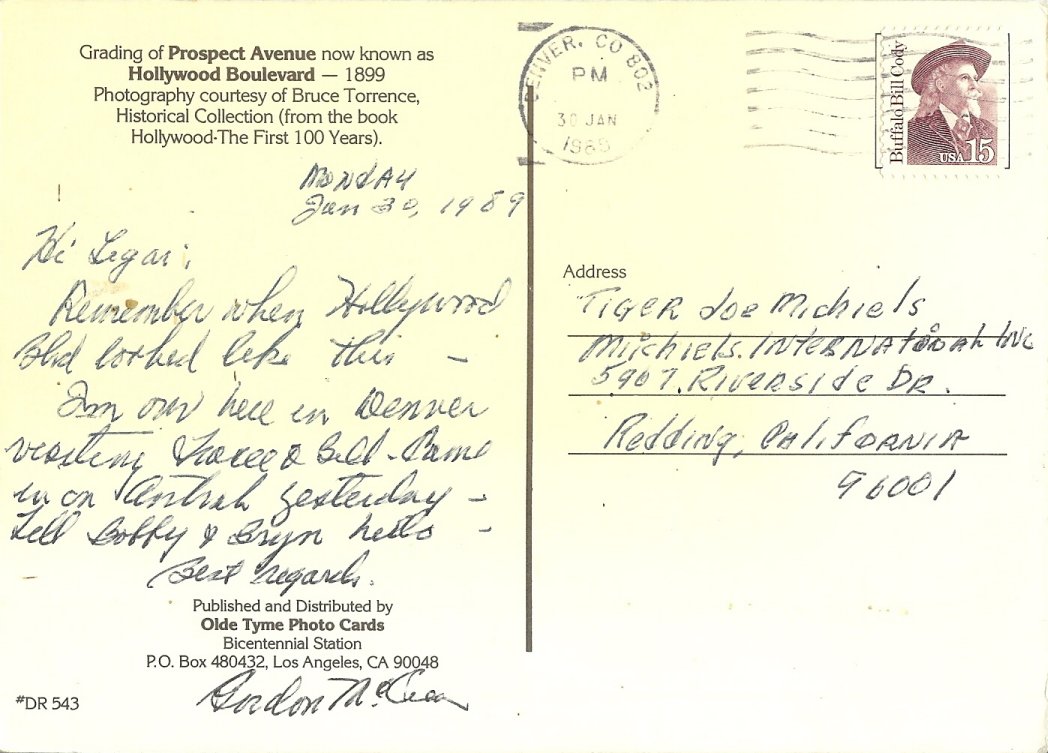 Grading of Prospect Avenue now known as
Hollywood Boulevard — 1899
Photography courtesy of Bruce Torrence,
Historical Collection (from the book
Hollywood-The First 100 Years).
Monday
Jan 30, 1989
Hi
Remember when Hollywood
Blvd looked like this —
I'm our here in Denver
visiting & Bill - Came
in on yesterday —
Tell Bobby & Bryn hello —
Best regards.
Published and Distributed by
Olde Tyme Photo Cards
Bicentennial Station
P.O. Box 480432, Los Angeles, CA 90048
Gordon
#DR 543
DENVER, CO 802
PM
30 JAN
1989
Buffalo Bill Cody
USA 15
Address
TIGER Joe Michiels
Michiels. INTERNATIONAL INC
5907. RIVERSIDE DR.
Redding, CALIFORNIA
96001